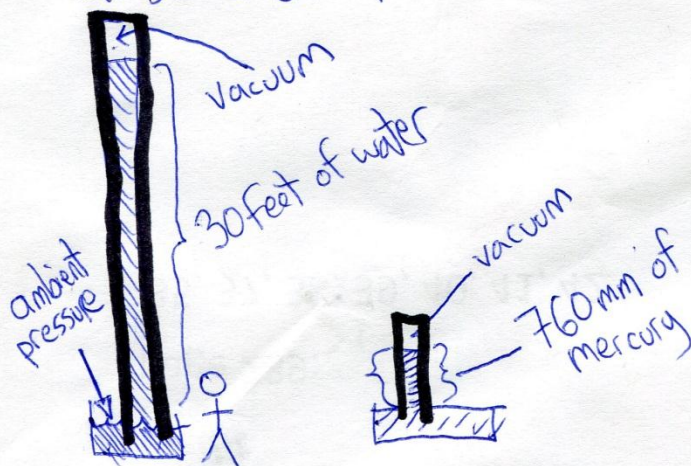 vacuum
30 feet of water
ambient
pressure
vacuum
760 mm of
mercury